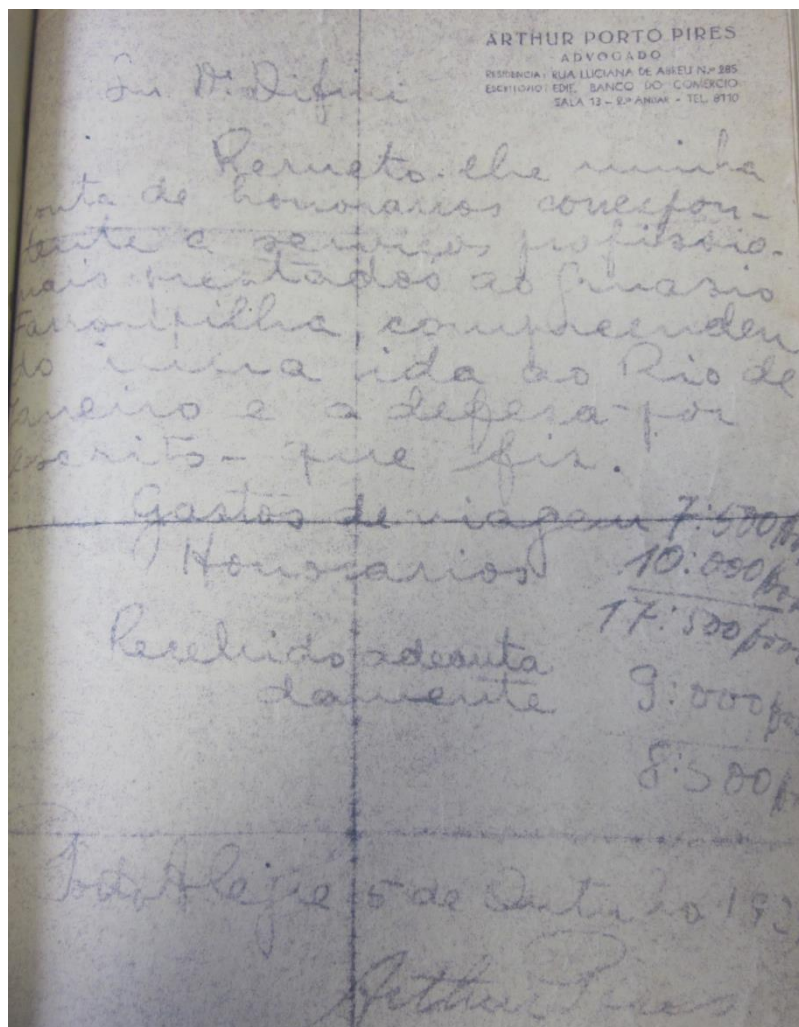 ARTHUR PORTO PIRES
ADVOGADO
RESIDENCIA: RUA LUCIANA DE ABREU N.º 285
ESCRITORIO: EDIF. BANCO DO COMERCIO
SALA 13 - 2.º ANDAR - TEL. 8110
Snr. Dr. Difini
Remeto-lhe minha
conta de honorarios correspon-
dente a serviços professio-
nais prestados ao Ginasio
Farroupilha, compreenden
do minha ida ao Rio de
Janeiro e a defesa-por
escrito- que fiz.
Gastos de viagem 7:500
Honorarios 10:000
17:500
Recebido adeanta
damente 9:000
8:500
Porto Alegre 5 de Outubro 193
Arthur Pires